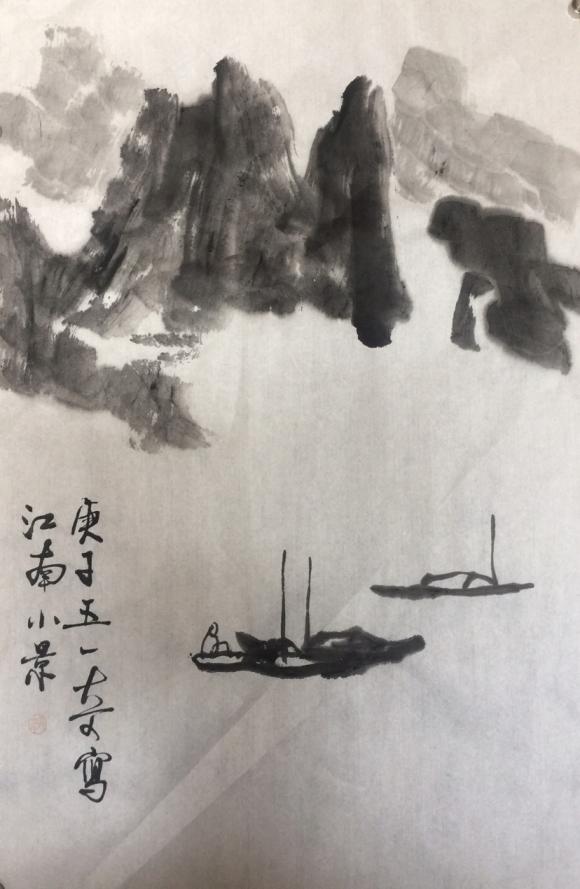 庚子五一大可寫
江南小景